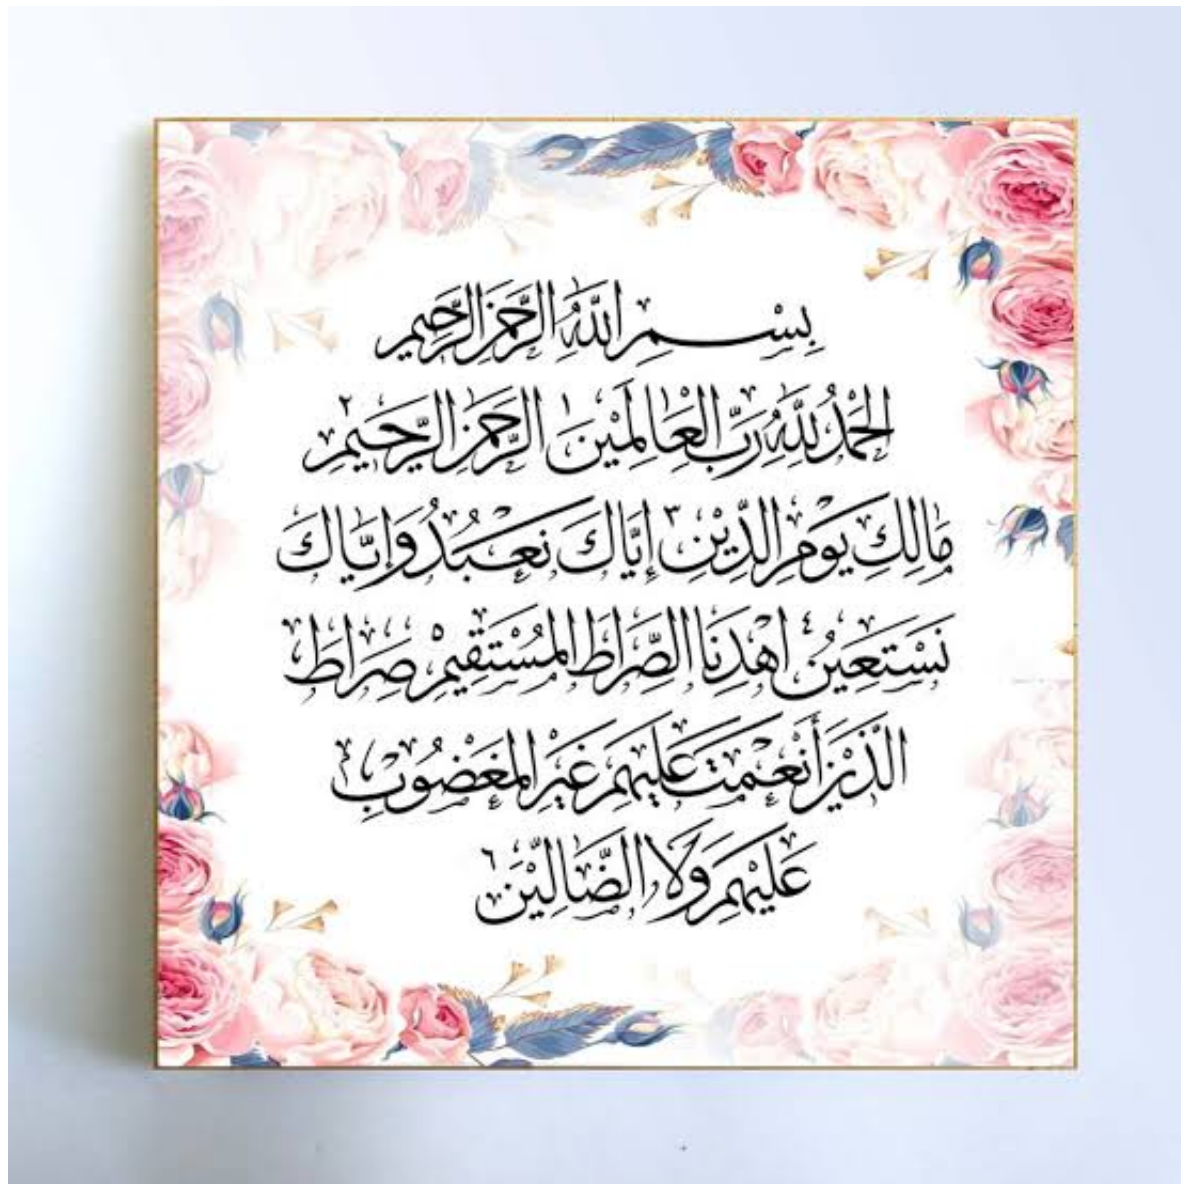 بِسْمِ اللَّهِ الرَّحْمَنِ الرَّحِيمِ
الْحَمْدُ لِلَّهِ رَبِّ الْعَالَمِيْنَ ١ الرَّحْمَنِ الرَّحِيْمِ ٢
مَالِكِ يَوْمِ الدِّيْنِ ٣ إِيَّاكَ نَعْبُدُ وَإِيَّاكَ
نَسْتَعِيْنُ ٤ اهْدِنَا الصِّرَاطَ الْمُسْتَقِيْمَ ٥ صِرَاطَ
الَّذِيْنَ أَنْعَمْتَ عَلَيْهِمْ غَيْرِ الْمَغْضُوْبِ
عَلَيْهِمْ وَلَا الضَّالِّيْنَ ٦